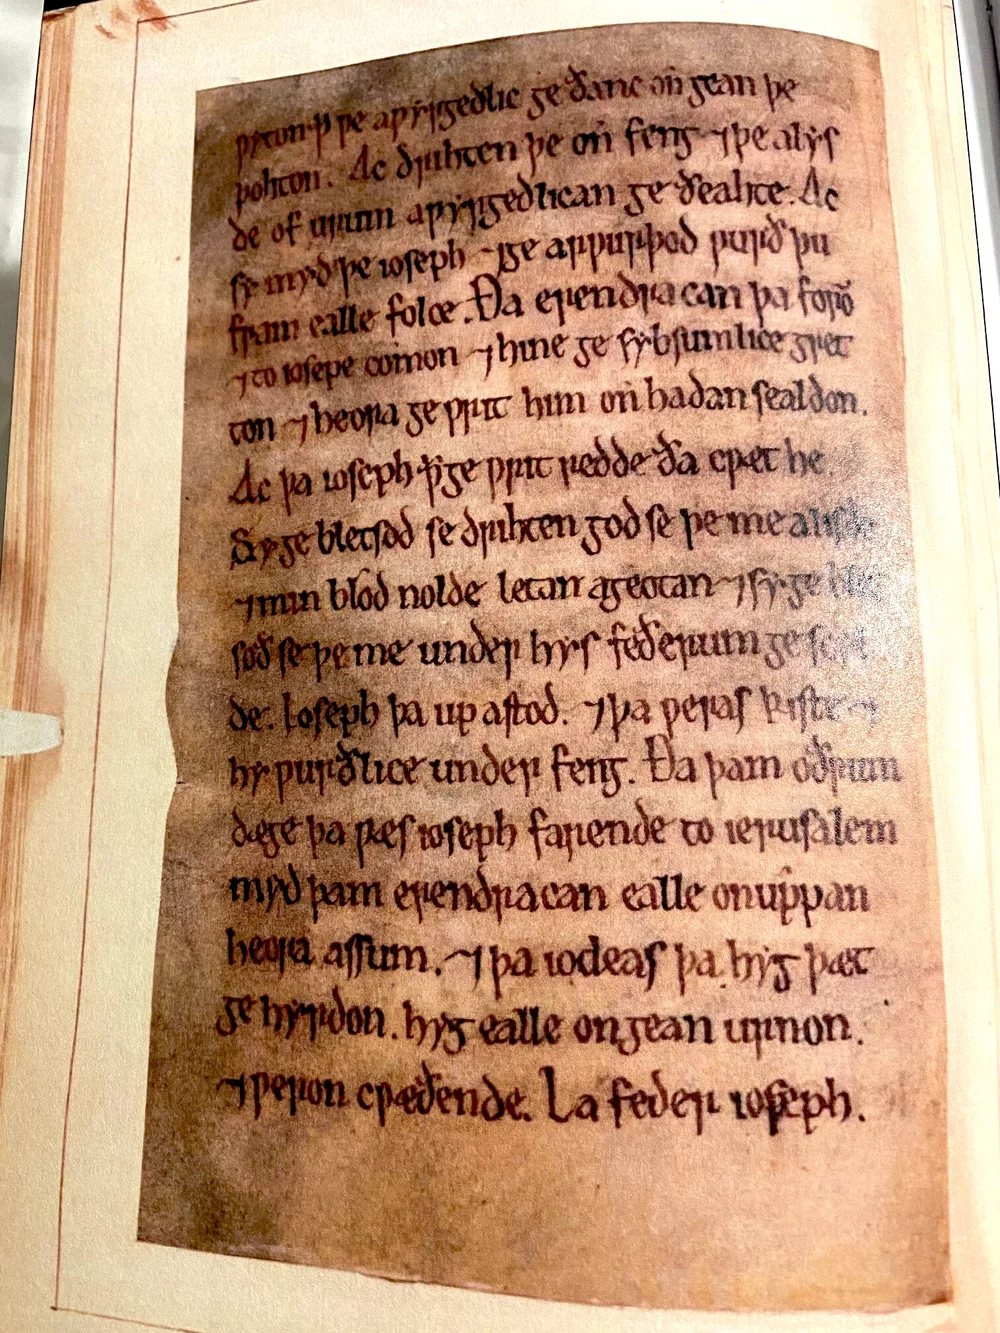 ƿyton ꝥ ƿe aƿyrgedlic ge ðanc on gean þe
þohton. Ac drihten þe on feng ⁊ þe alys
de of urum aƿyrgedlican ge ðeahte. Ac
sy myd þe ioseph ⁊ ge arƿurþod ƿurð þu
fram ealle folce. Ða erendracan þa forð
⁊ to iosepe comon ⁊ hine ge sybsumlice gret
ton ⁊ heora ge ƿritt him on hadan sealdon.
Ac þa ioseph ꝥ ge ƿritt redde ða cƿæt he
Sy ge bletsod se drihten god se þe me
⁊ min blod nolde letan ageotan ⁊ sy ge blet
sod se þe me under hys feðerum ge
de. Ioseph þa up astod. ⁊ þa ƿeras
hy ƿurðlice under feng. Ða þam oðrum
dæge þa ƿæs ioseph farende to ierusalem
myd þam erendracan ealle onuppan
heora assum. ⁊ þa iodeas þa hyg þæt
ge hyrdon. hyg ealle ongean urnon.
⁊ ƿeron cƿæðende. La feder ioseph.